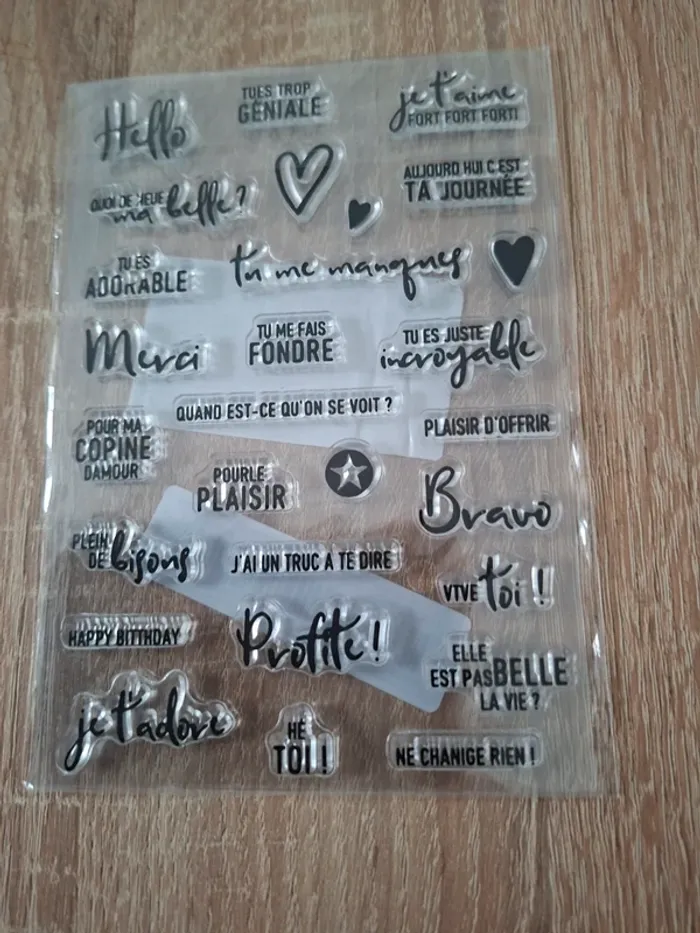 Hello
TUES TROP
GÉNIALE
je t'aime
FORT FORT FORT!
QUOI DE NEUF
ma belle?
AUJOURD HUI C'EST
TA JOURNÉE
TU ES
ADORABLE
tu me manques
Merci
TU ME FAIS
FONDRE
TU ES JUSTE
incroyable
QUAND EST-CE QU'ON SE VOIT ?
PLAISIR D'OFFRIR
POUR MA
COPINE
DAMOUR
POURLE
PLAISIR
Bravo
PLEIN
DE bisous
J'AI UN TRUC A TE DIRE
VIVE toi !
HAPPY BITTHDAY
Profite !
ELLE
EST PAS BELLE
LA VIE ?
je t'adore
HÉ
TOI !
NE CHANIGE RIEN !